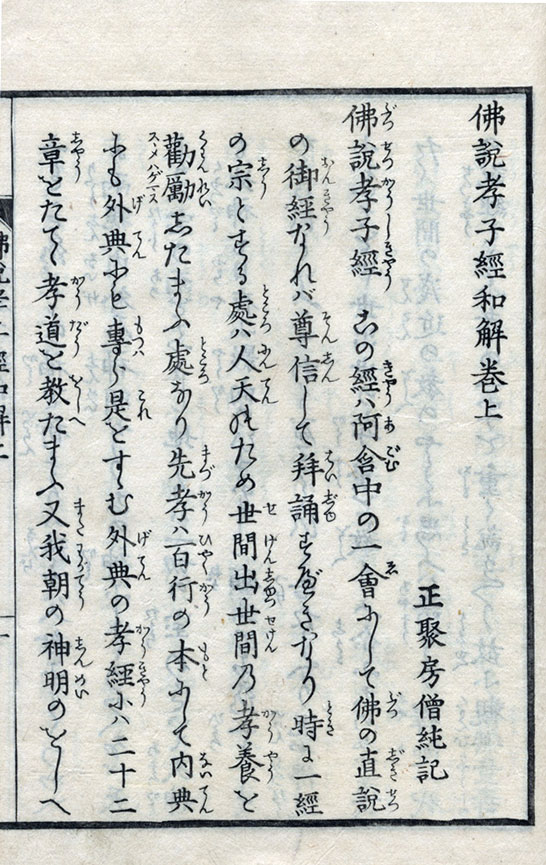 佛說孝子經和解卷上
正聚房僧純記
佛說孝子經 この經ハ阿含中の一會にして佛の直說
の御經なれバ尊信して拜誦すべきなり時に一經
の宗とする處ハ人天のため世間出世間乃孝養を
勸勵したまふ處なり先孝ハ百行の本にして内典
にも外典にも專ら是をすゝむ外典の孝經にハ二十二
章をたてゝ孝道を教たまふ又我朝の神明のをしへ